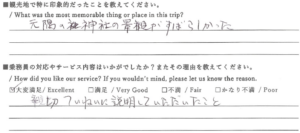 ■観光地で特に印象的だったことを教えてください。
/ What was the most memorable thing or place in this trip?
元隅ノ稲神社の景観がすばらしかった
■乗務員の対応やサービス内容はいかがでしたか？またその理由を教えてください。
/ How did you like our service? If you wouldn't mind, please let us know the reason.
☑大変満足 / Excellent □満足 / Very Good □不満 / Poor □かなり不満 / Poor
親切ていねいに説明していただいたこと